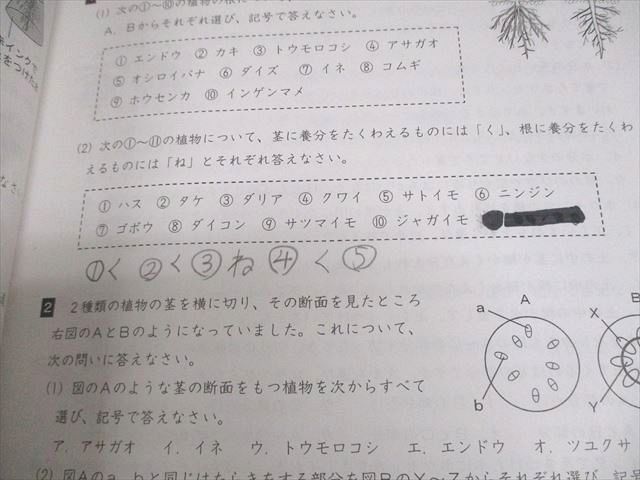 (1) 次の①〜⑩の植物の根に
A、Bからそれぞれ選び、記号で答えなさい。
① エンドウ ② カキ ③ トウモロコシ ④ アサガオ
⑤ オシロイバナ ⑥ ダイズ ⑦ イネ ⑧ コムギ
⑨ ホウセンカ ⑩ インゲンマメ
(2) 次の①〜⑪の植物について、茎に養分をたくわえるものには「く」、根に養分をたくわ
えるものには「ね」とそれぞれ答えなさい。
① ハス ② タケ ③ ダリア ④ クワイ ⑤ サトイモ ⑥ ニンジン
⑦ ゴボウ ⑧ ダイコン ⑨ サツマイモ ⑩ ジャガイモ
①く ②く ③ね ④く ⑤
2 2種類の植物の茎を横に切り、その断面を見たところ
右図のAとBのようになっていました。これについて、
次の問いに答えなさい。
(1) 図のAのような茎の断面をもつ植物を次からすべて
選び、記号で答えなさい。
ア. アサガオ イ. イネ ウ. トウモロコシ エ. エンドウ オ. ツユクサ
A B
a X
b Y
(2) 図Aのa、bと同じはたらきをする部分を図BのX〜Zからそれぞれ選び、記号